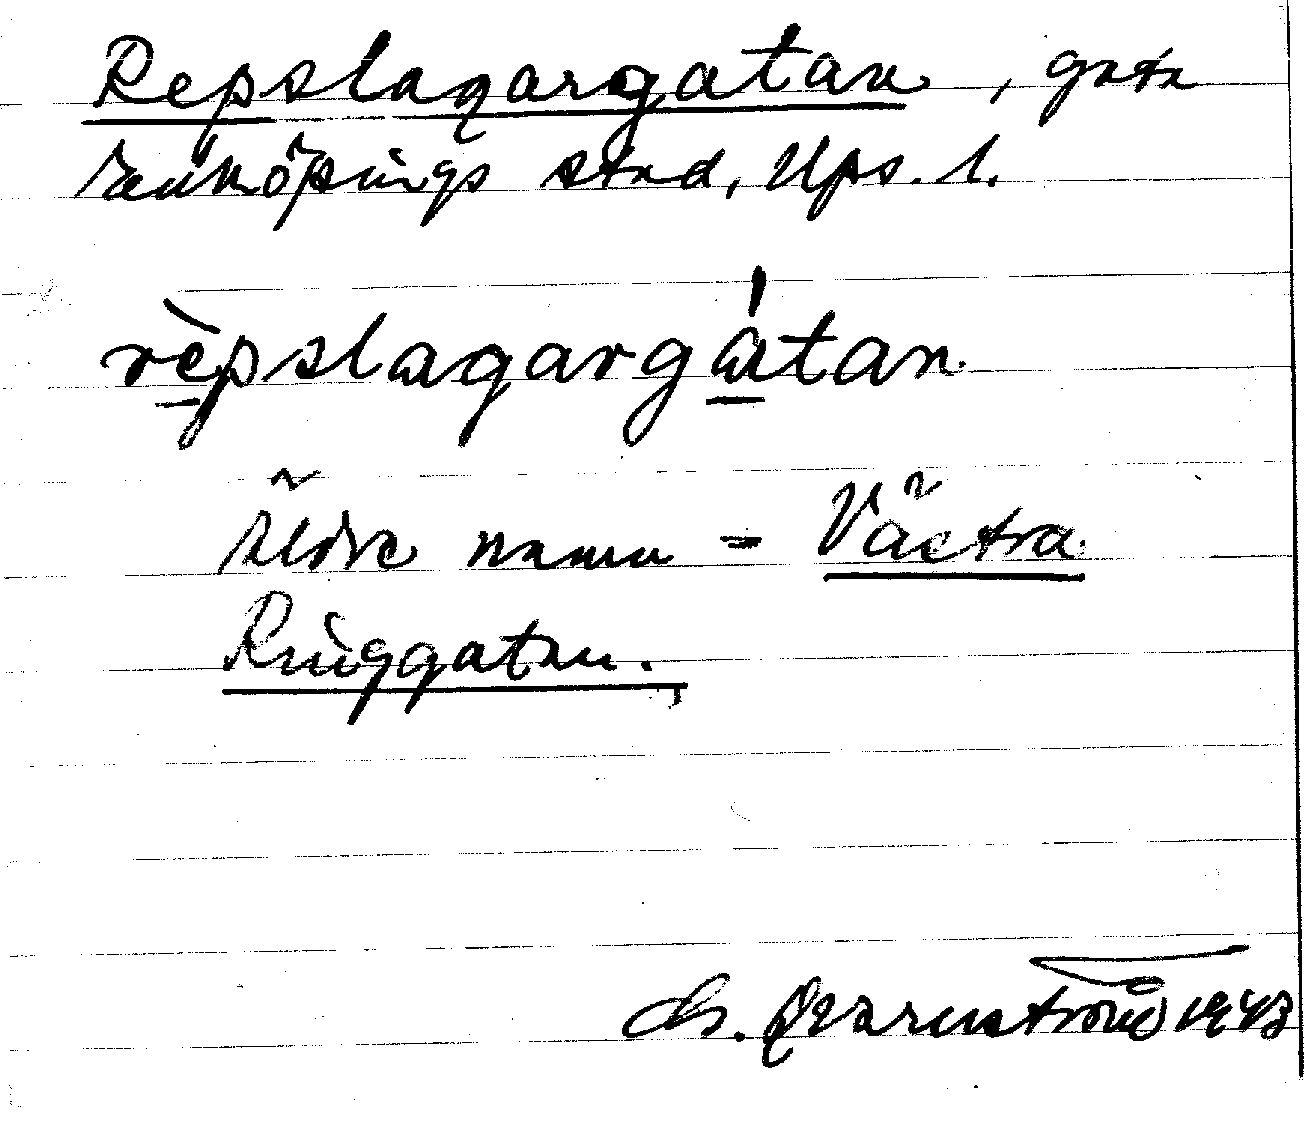 Repslagargatan, gata
i Enköpings stad, Ups. l.
rèpslagargátan
Äldre namn = Västra
Ringgatan.
Qvarnström 1943